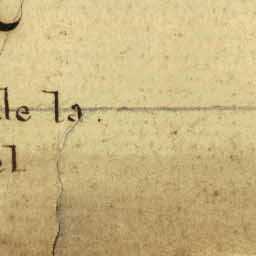 de la .
el